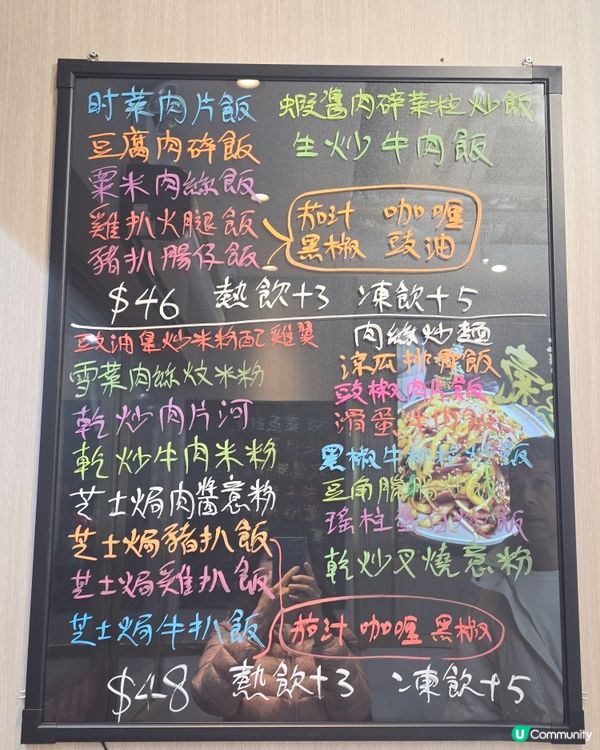 时菜肉片飯
豆腐肉碎飯
粟米肉絲飯
雞扒火腿飯
豬扒腸仔飯
蝦醬肉碎菜粒炒飯
生炒牛肉飯
茄汁 咖喱
黑椒 豉油
$46 熱飲+3 凍飲+5
豉油皇炒米粉配雞翼
雪菜肉絲炆米粉
乾炒肉片河
乾炒牛肉米粉
芝士焗肉醬意粉
芝士焗豬扒飯
芝士焗雞扒飯
芝士焗牛扒飯
肉絲炒麵
涼瓜排骨飯
豉椒肉片飯
滑蛋牛肉飯
黑椒牛柳粒炒飯
豆角腩
瑤柱蛋白炒飯
乾炒叉燒意粉
茄汁 咖喱 黑椒
$48 熱飲+3 凍飲+5
U Community